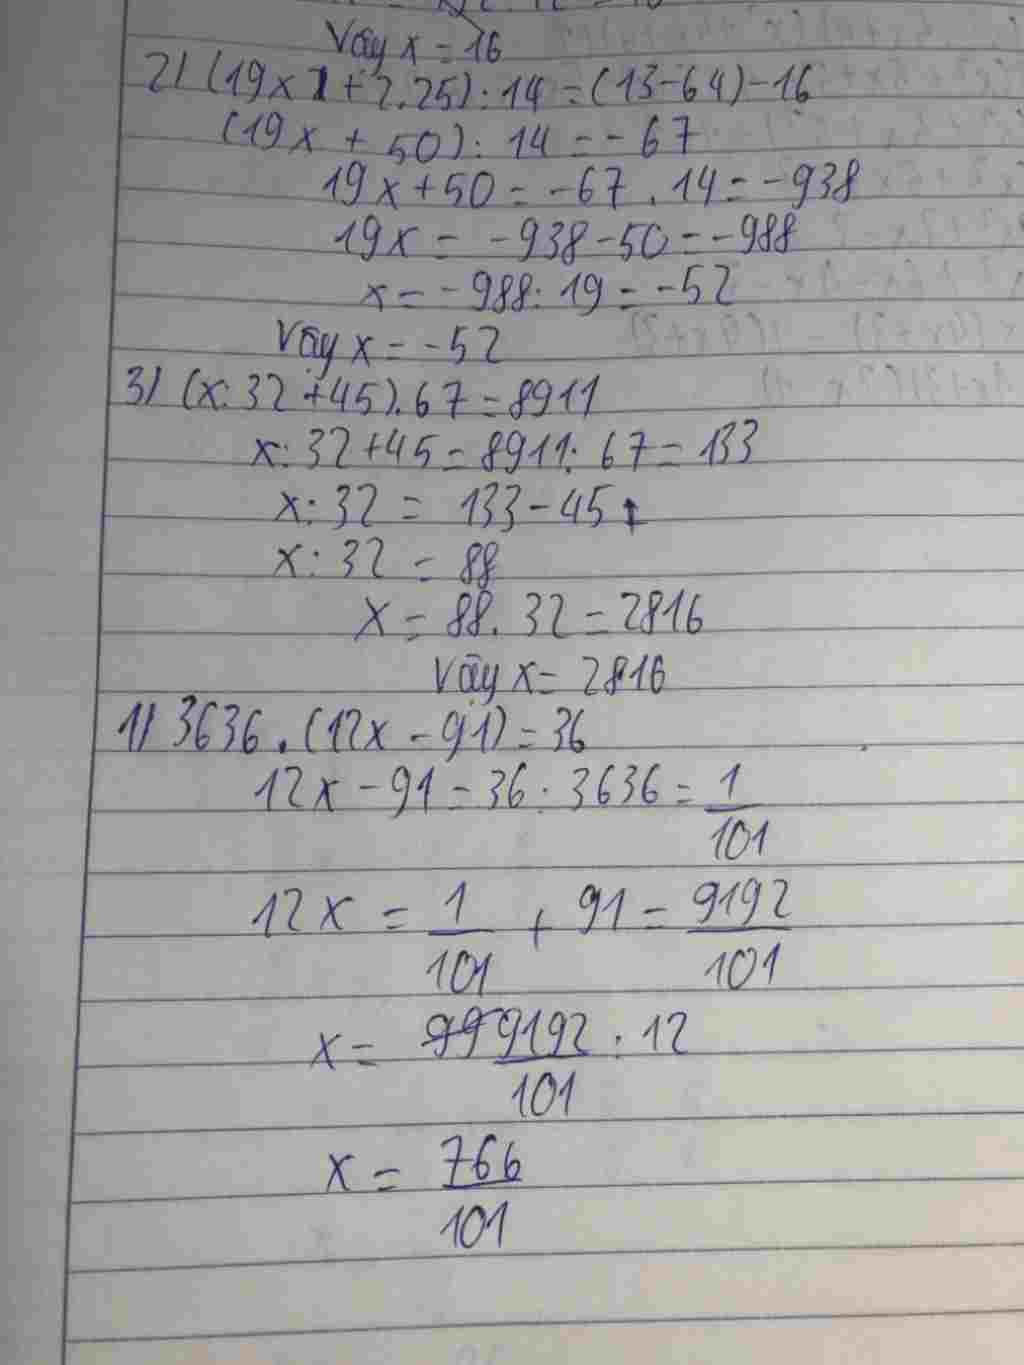 Vây x = 16
2) (19x + 2.25) : 14 = (13-64) - 16
(19x + 50) : 14 = -67
19x + 50 = -67 . 14 = -938
19x = -938 - 50 = -988
x = -988 : 19 = -52
Vây x = -52
3) (x: 32 + 45).67 = 8911
x: 32 + 45 = 8911: 67 = 133
x: 32 = 133 - 45
x: 32 = 88
x = 88. 32 = 2816
Vây x = 2816
1) 3636 . (12x - 91) = 36
12x - 91 = 36 : 3636 = 1/101
12x = 1/101 + 91 = 9192/101
x = 9192/101 : 12
x = 766/101